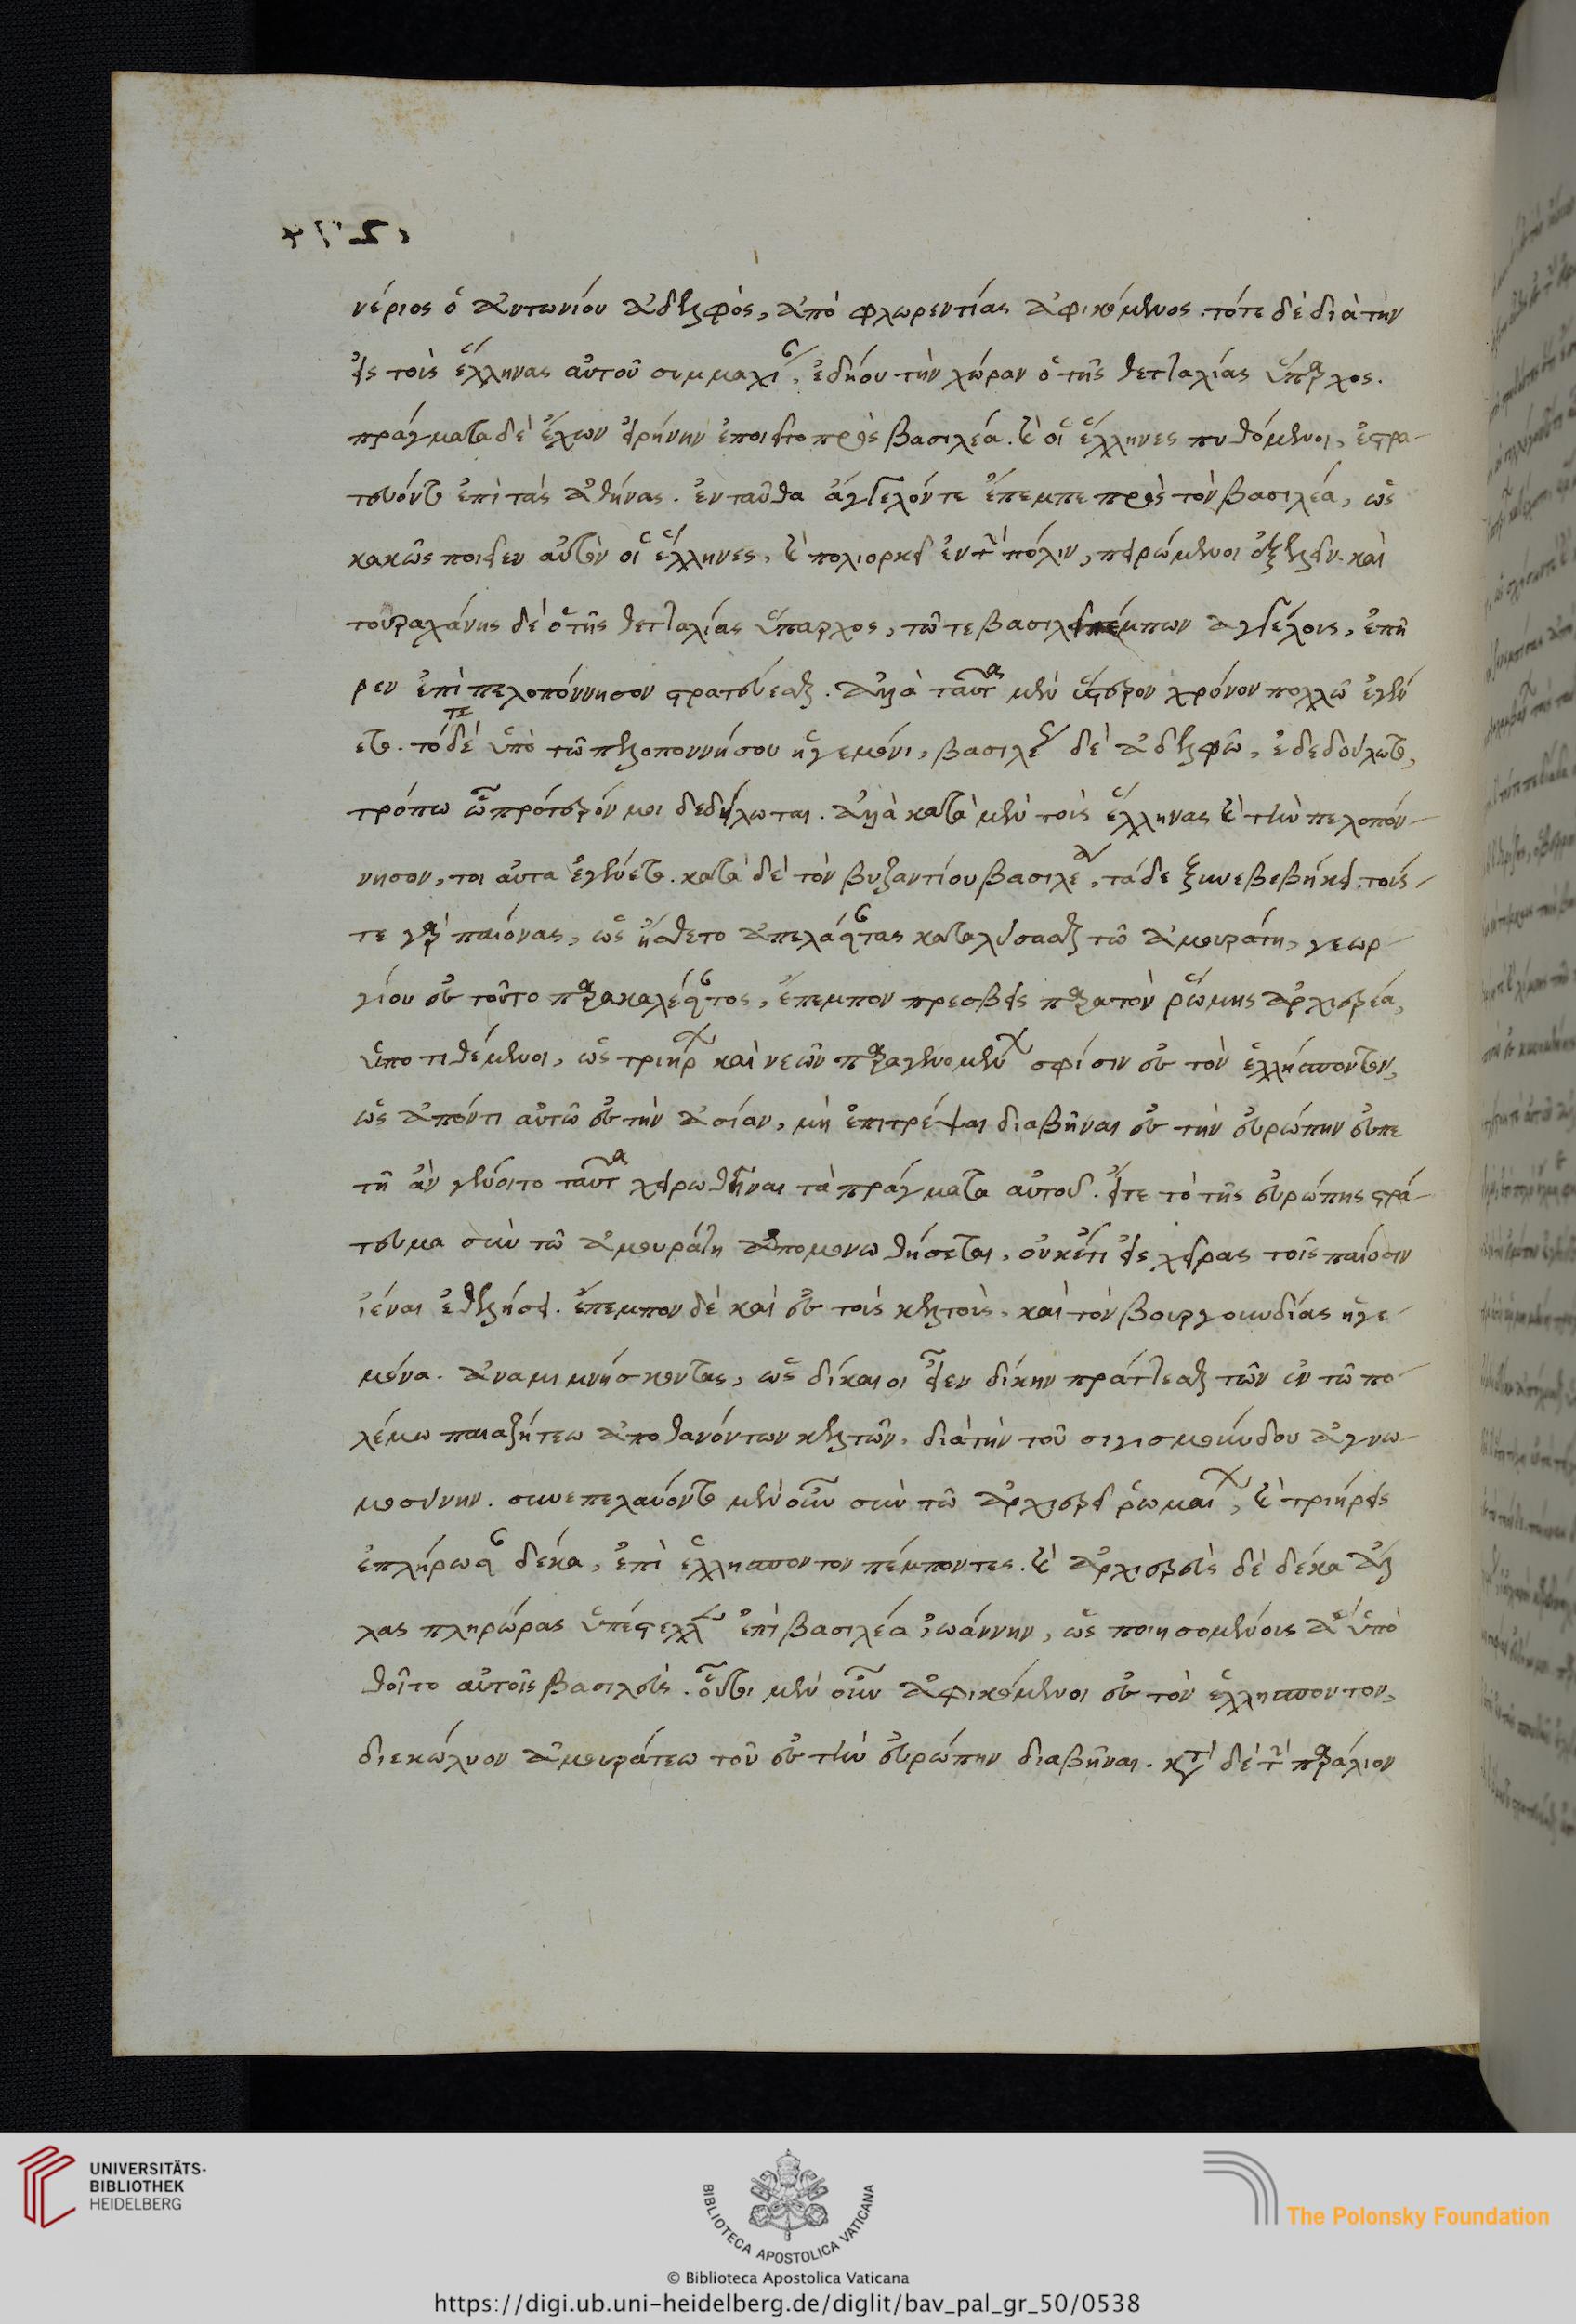 νέριος ὁ ἀντωνίου ἀδελφὸς, ἀπὸ φλωρεντίας ἀφικόμενος. τότε δὲ διὰ τὴν
ἐς τοὺς ἕλληνας αὐτοῦ συμμαχίαν, ἐδῄου τὴν χώραν ὁ τῆς θετταλίας ὕπαρχος.
πράγματα δὲ ἔχων εἰρήνην ἐποιεῖτο πρὸς βασιλέα. καὶ οἱ ἕλληνες πυθόμενοι, ἐστρα-
τεύοντο ἐπὶ τὰς ἀθήνας. ἐνταῦθα ἀγγελόντε ἔπεμπε πρὸς τὸν βασιλέα, ὡς
κακῶς ποιεῖεν αὐτὸν οἱ ἕλληνες, καὶ πολιορκεῖεν τὴν πόλιν, πειρώμενοι ἐξελεῖν. καὶ
τουραχάνης δὲ ὁ τῆς θετταλίας ὕπαρχος, τῶ τε βασιλεῖ πέμπων ἀγγέλους, ἐπῆ
ρεν ἐπὶ πελοπόννησον στρατεύεσθαι. ἀλλὰ ταῦτα μὲν ὕστερον χρόνον πολλῶ ἐγέν
ετο. τότε δὲ ὑπὸ τῶ πελοποννήσου ἡγεμόνι, βασιλέως δὲ ἀδελφῶ, ἐδεδούλωτο,
τρόπω ὧ πρότερόν μοι δεδήλωται. ἀλλὰ κατὰ μὲν τοὺς ἕλληνας καὶ τὴν πελοπόν-
νησον, τοιαῦτα ἐγένετο. κατὰ δὲ τὸν βυζαντίου βασιλέα, τάδε ξυνεβεβήκει. τούς-
τε γὰρ παιόνας, ὡς ᾔσθετο ἀπελάσαντας καταλύσασθαι τῶ ἀμουράτη, γεωρ-
γίου ἐς τοῦτο παρακαλέσαντος, ἔπεμπον πρεσβεῖς παρὰ τὸν ῥώμης ἀρχιερέα,
ὑποτιθέμενοι, ὡς τριηρῶν καὶ νεῶν παραγενομένων σφίσιν ἐς τὸν ἑλλήσποντον,
ὡς ἀπόντι αὐτῶ ἐς τὴν ἀσίαν, μὴ ἐπιτρέψαι διαβῆναι ἐς τὴν εὐρώπην εὐπε
τῆ ἂν γένοιτο ταύτη χειρωθῆναι τὰ πράγματα αὐτοῦ. εἴτε τὸ τῆς εὐρώπης στρά-
τευμα σὺν τῶ ἀμουράτη ἀπομονωθήσεται, οὐκέτι ἐς χεῖρας τοῖς παίοσιν
ἰέναι ἐθελήσει. ἔπεμπον δὲ καὶ ἐς τοὺς κελτοὺς, καὶ τὸν βουργουνδίας ἡγε-
μόνα. ἀναμιμνήσκοντας, ὡς δίκαιοι εἶεν δίκην πράττεσθαι τῶν ἐν τῶ πο-
λέμω παιαζήτεω ἀποθανόντων κελτῶν, διὰ τὴν τοῦ σιγισμούνδου ἀγνω-
μοσύνην. συνεπελάβοντο μὲν οὖν σὺν τῶ ἀρχιερεῖ ῥωμαίων, καὶ τριήρεις
ἐπλήρωσαν δέκα, ἐπὶ ἑλλήσποντον πέμποντες. καὶ ἀρχιερεὺς δὲ δέκα ἄλ
λας πληρώσας ὑπέστελλεν ἐπὶ βασιλέα ἰωάννην, ὡς ποιησομένους ἃ ὑπό
θοῖτο αὐτοῖς βασιλεύς. οὗτοι μὲν οὖν ἀφικόμενοι ἐς τὸν ἑλλήσποντον,
διεκώλυον ἀμουράτεω τοῦ ἐς τὴν εὐρώπην διαβῆναι. κατὰ δὲ τὴν παράλιον
UNIVERSITÄTS-
BIBLIOTHEK
HEIDELBERG
BIBLIOTECA APOSTOLICA VATICANA
The Polonsky Foundation
© Biblioteca Apostolica Vaticana
https://digi.ub.uni-heidelberg.de/diglit/bav_pal_gr_50/0538